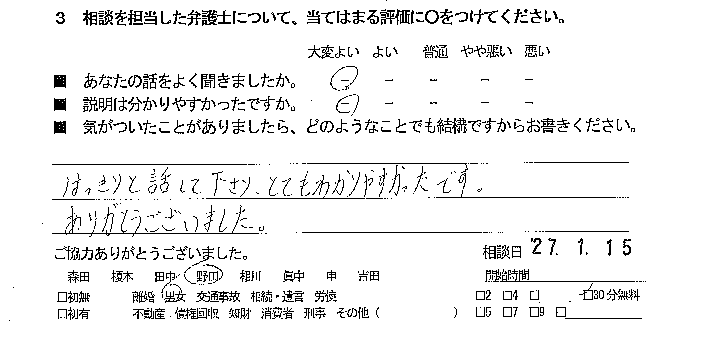 3 相談を担当した弁護士について、当てはまる評価に○をつけてください。
大変よい よい 普通 やや悪い 悪い
■ あなたの話をよく聞きましたか。 － － － － －
■ 説明は分かりやすかったですか。 － － － － －
■ 気がついたことがありましたら、どのようなことでも結構ですからお書きください。
はっきりと話して下さり、とてもわかりやすかったです。
ありがとうございました。
ご協力ありがとうございました。 相談日 '27. 1. 15
森田 榎本 田中 野田 相川 眞中 申 吉田 開始時間
□初無 離婚 男女 交通事故 相続・遺言 労働 □2 □4 □ □30分無料
□初有 不動産 債権回収 知財 消費者 刑事 その他 ( ) □5 □7 □9 □